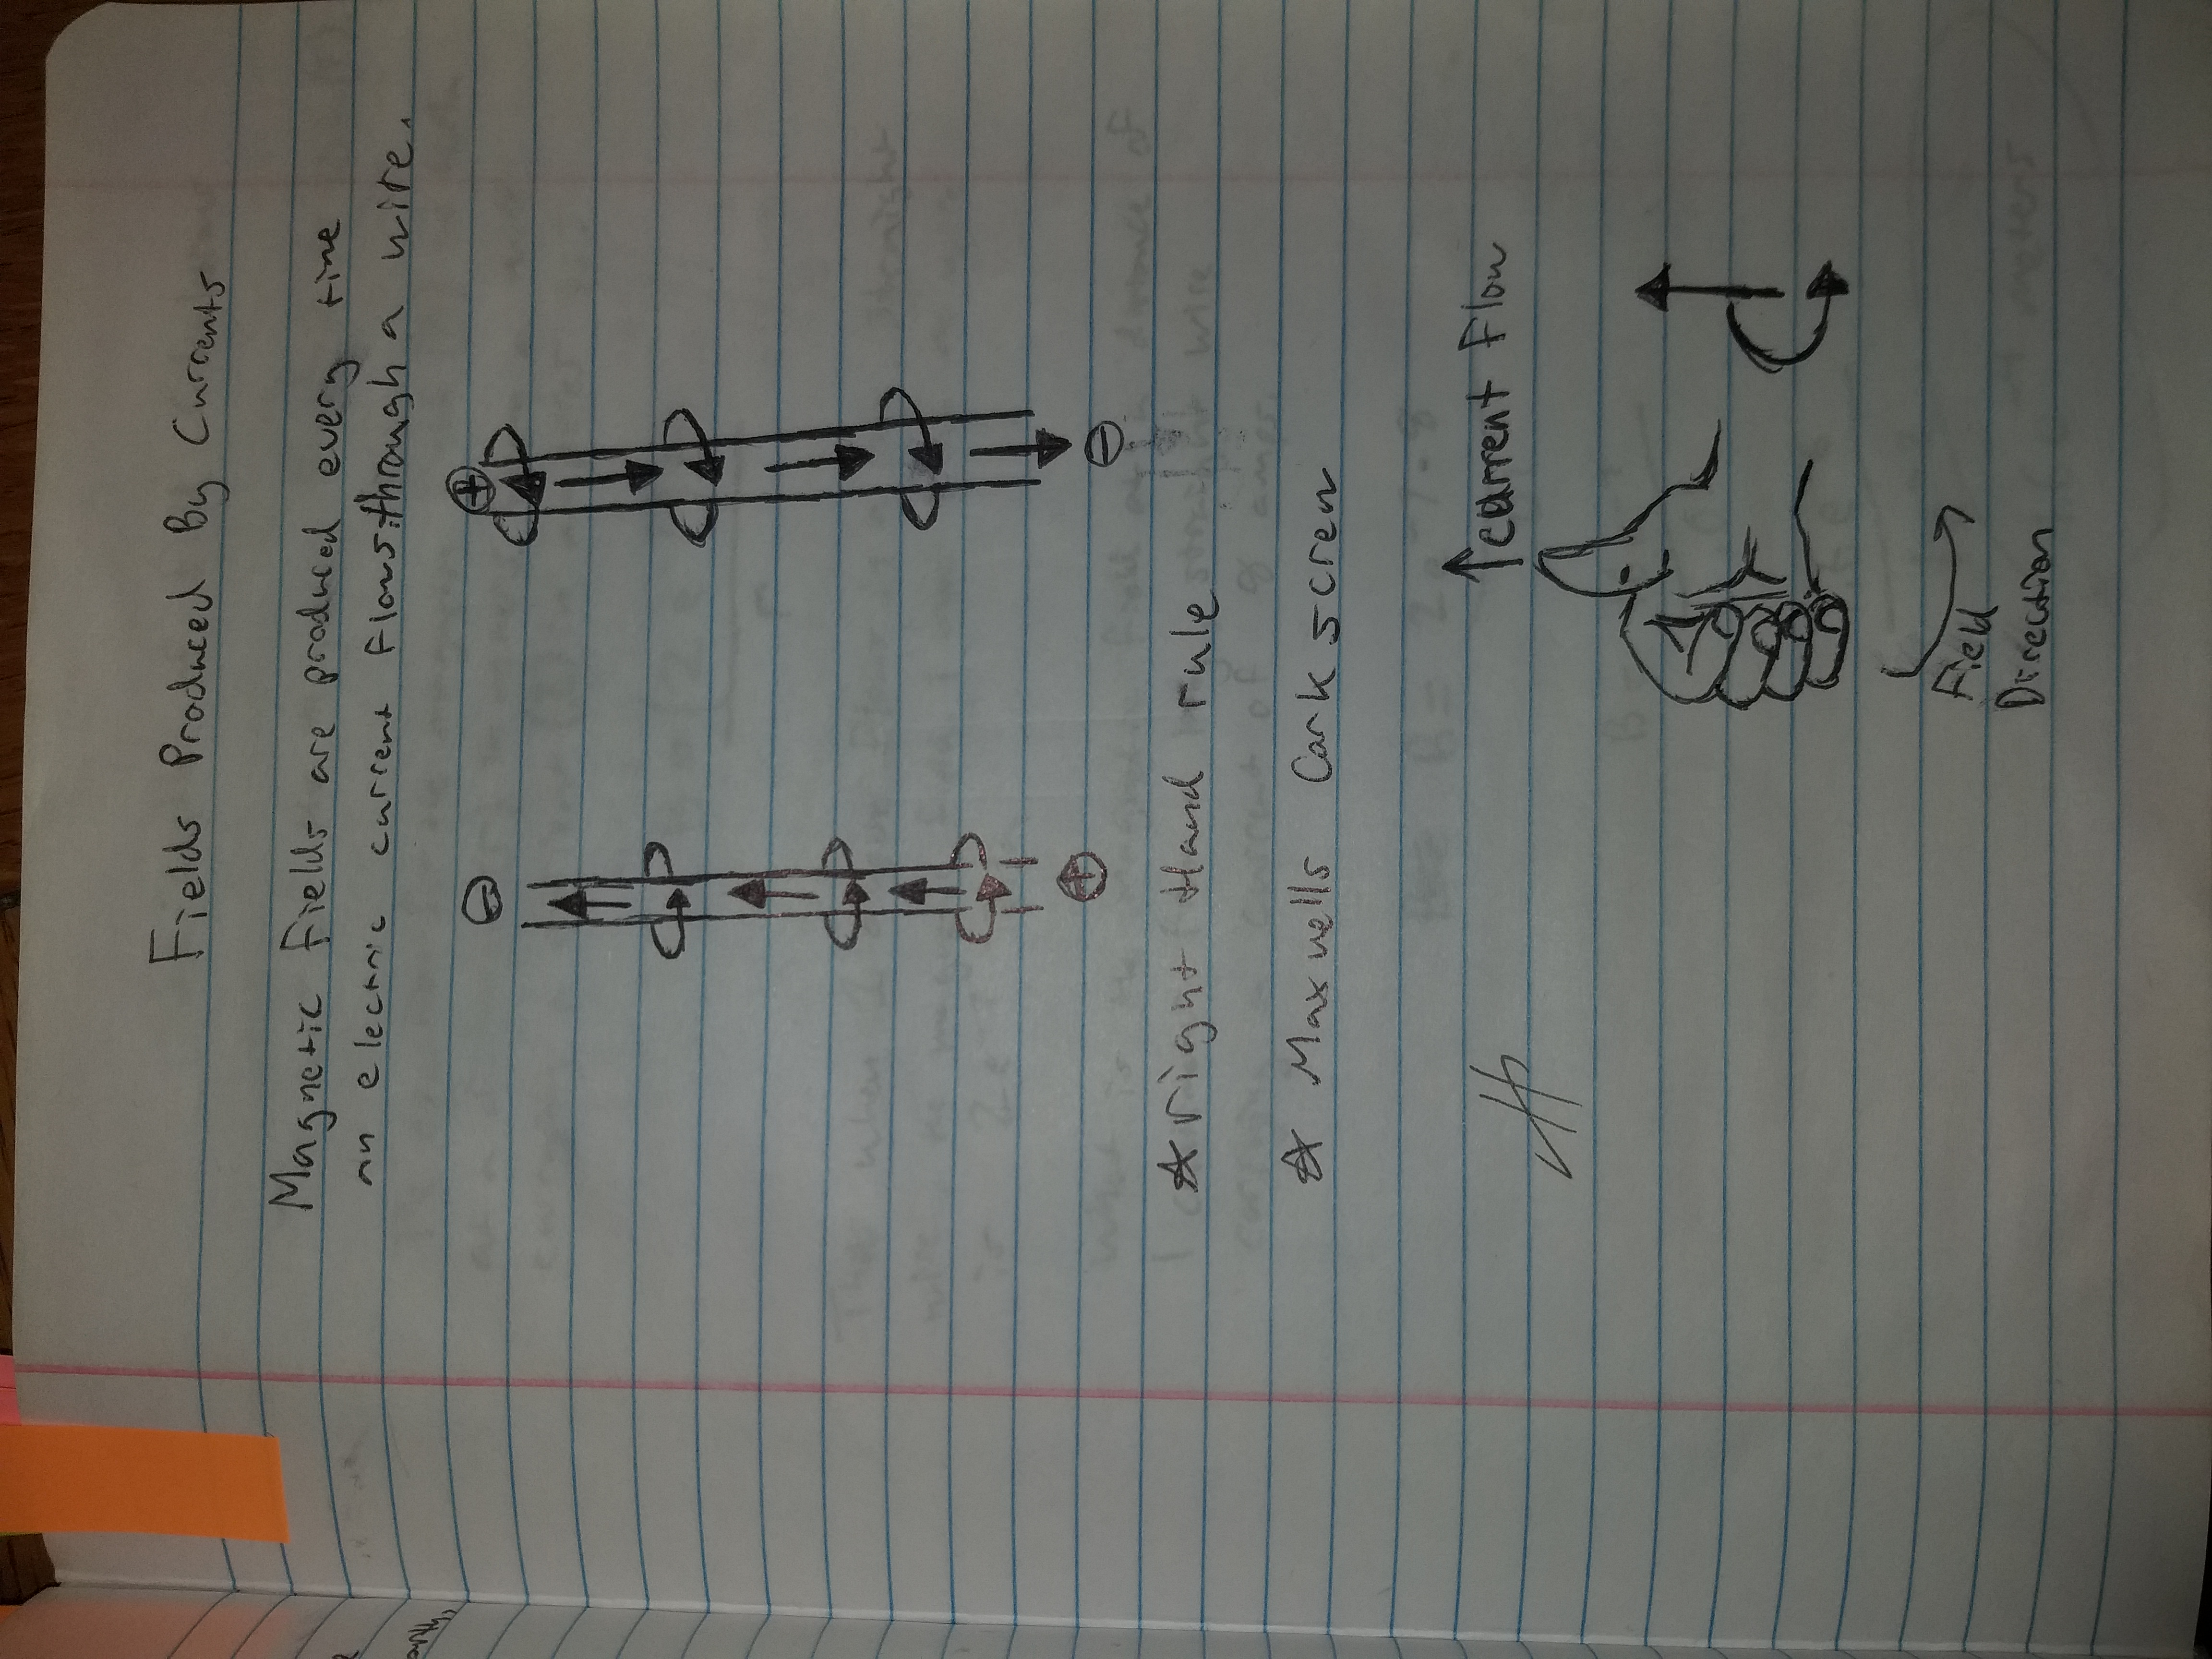 Fields Produced By Currents
Magnetic Fields are produced every time
an electric current flows through a wire.
⊖ ⊕
⊕ ⊖
☆ right Hand rule
☆ Maxwells Cork screw
↑ current Flow
Field
Direction